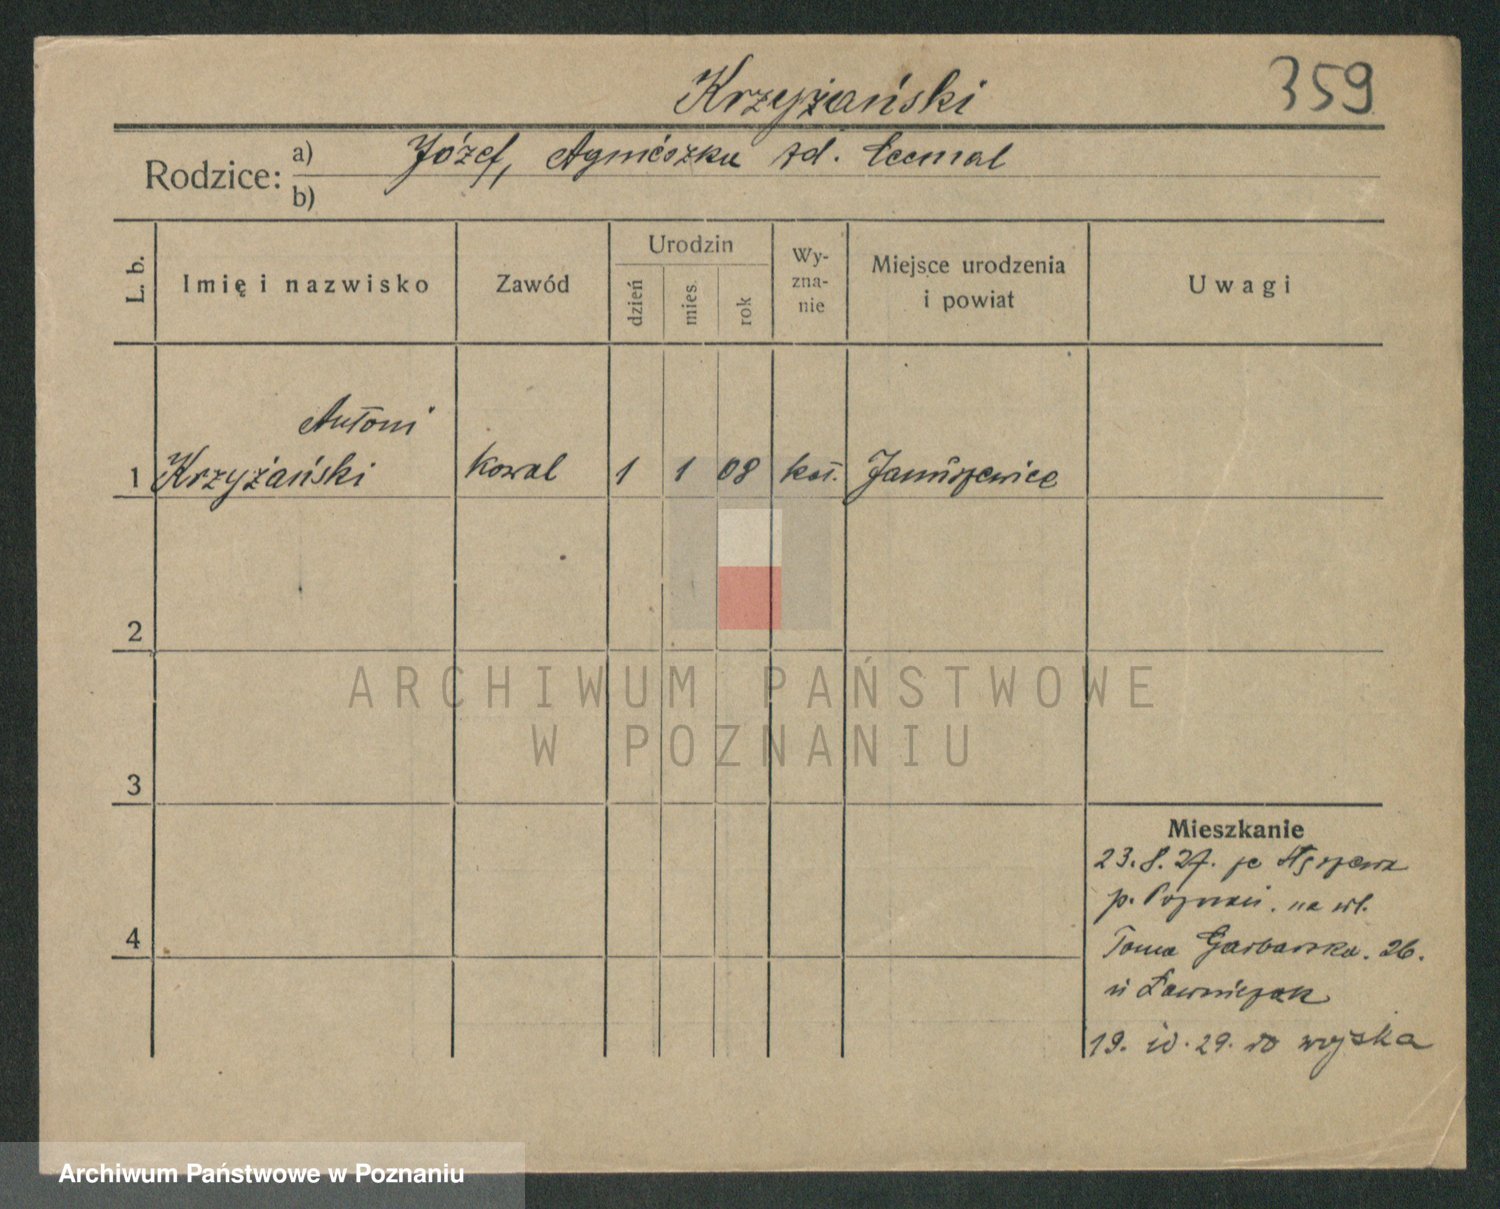 Krzyżański
359
Rodzice: a) Józef, Agnieszka zd.
b)
L. b.
Imię i nazwisko
Zawód
Urodzin
dzień
mies.
rok
Wy-
zna-
nie
Miejsce urodzenia
i powiat
Uwagi
Antoni
1 Krzyżański kowal 1 1 08 kat. Januszewice
2
3
4
ARCHIWUM PAŃSTWOWE
W POZNANIU
Mieszkanie
23.8.27. ze
p. Poznań. na wł.
Garbarska. 26.
u Ławniczak
19. 10. 29. do wojska
Archiwum Państwowe w Poznaniu